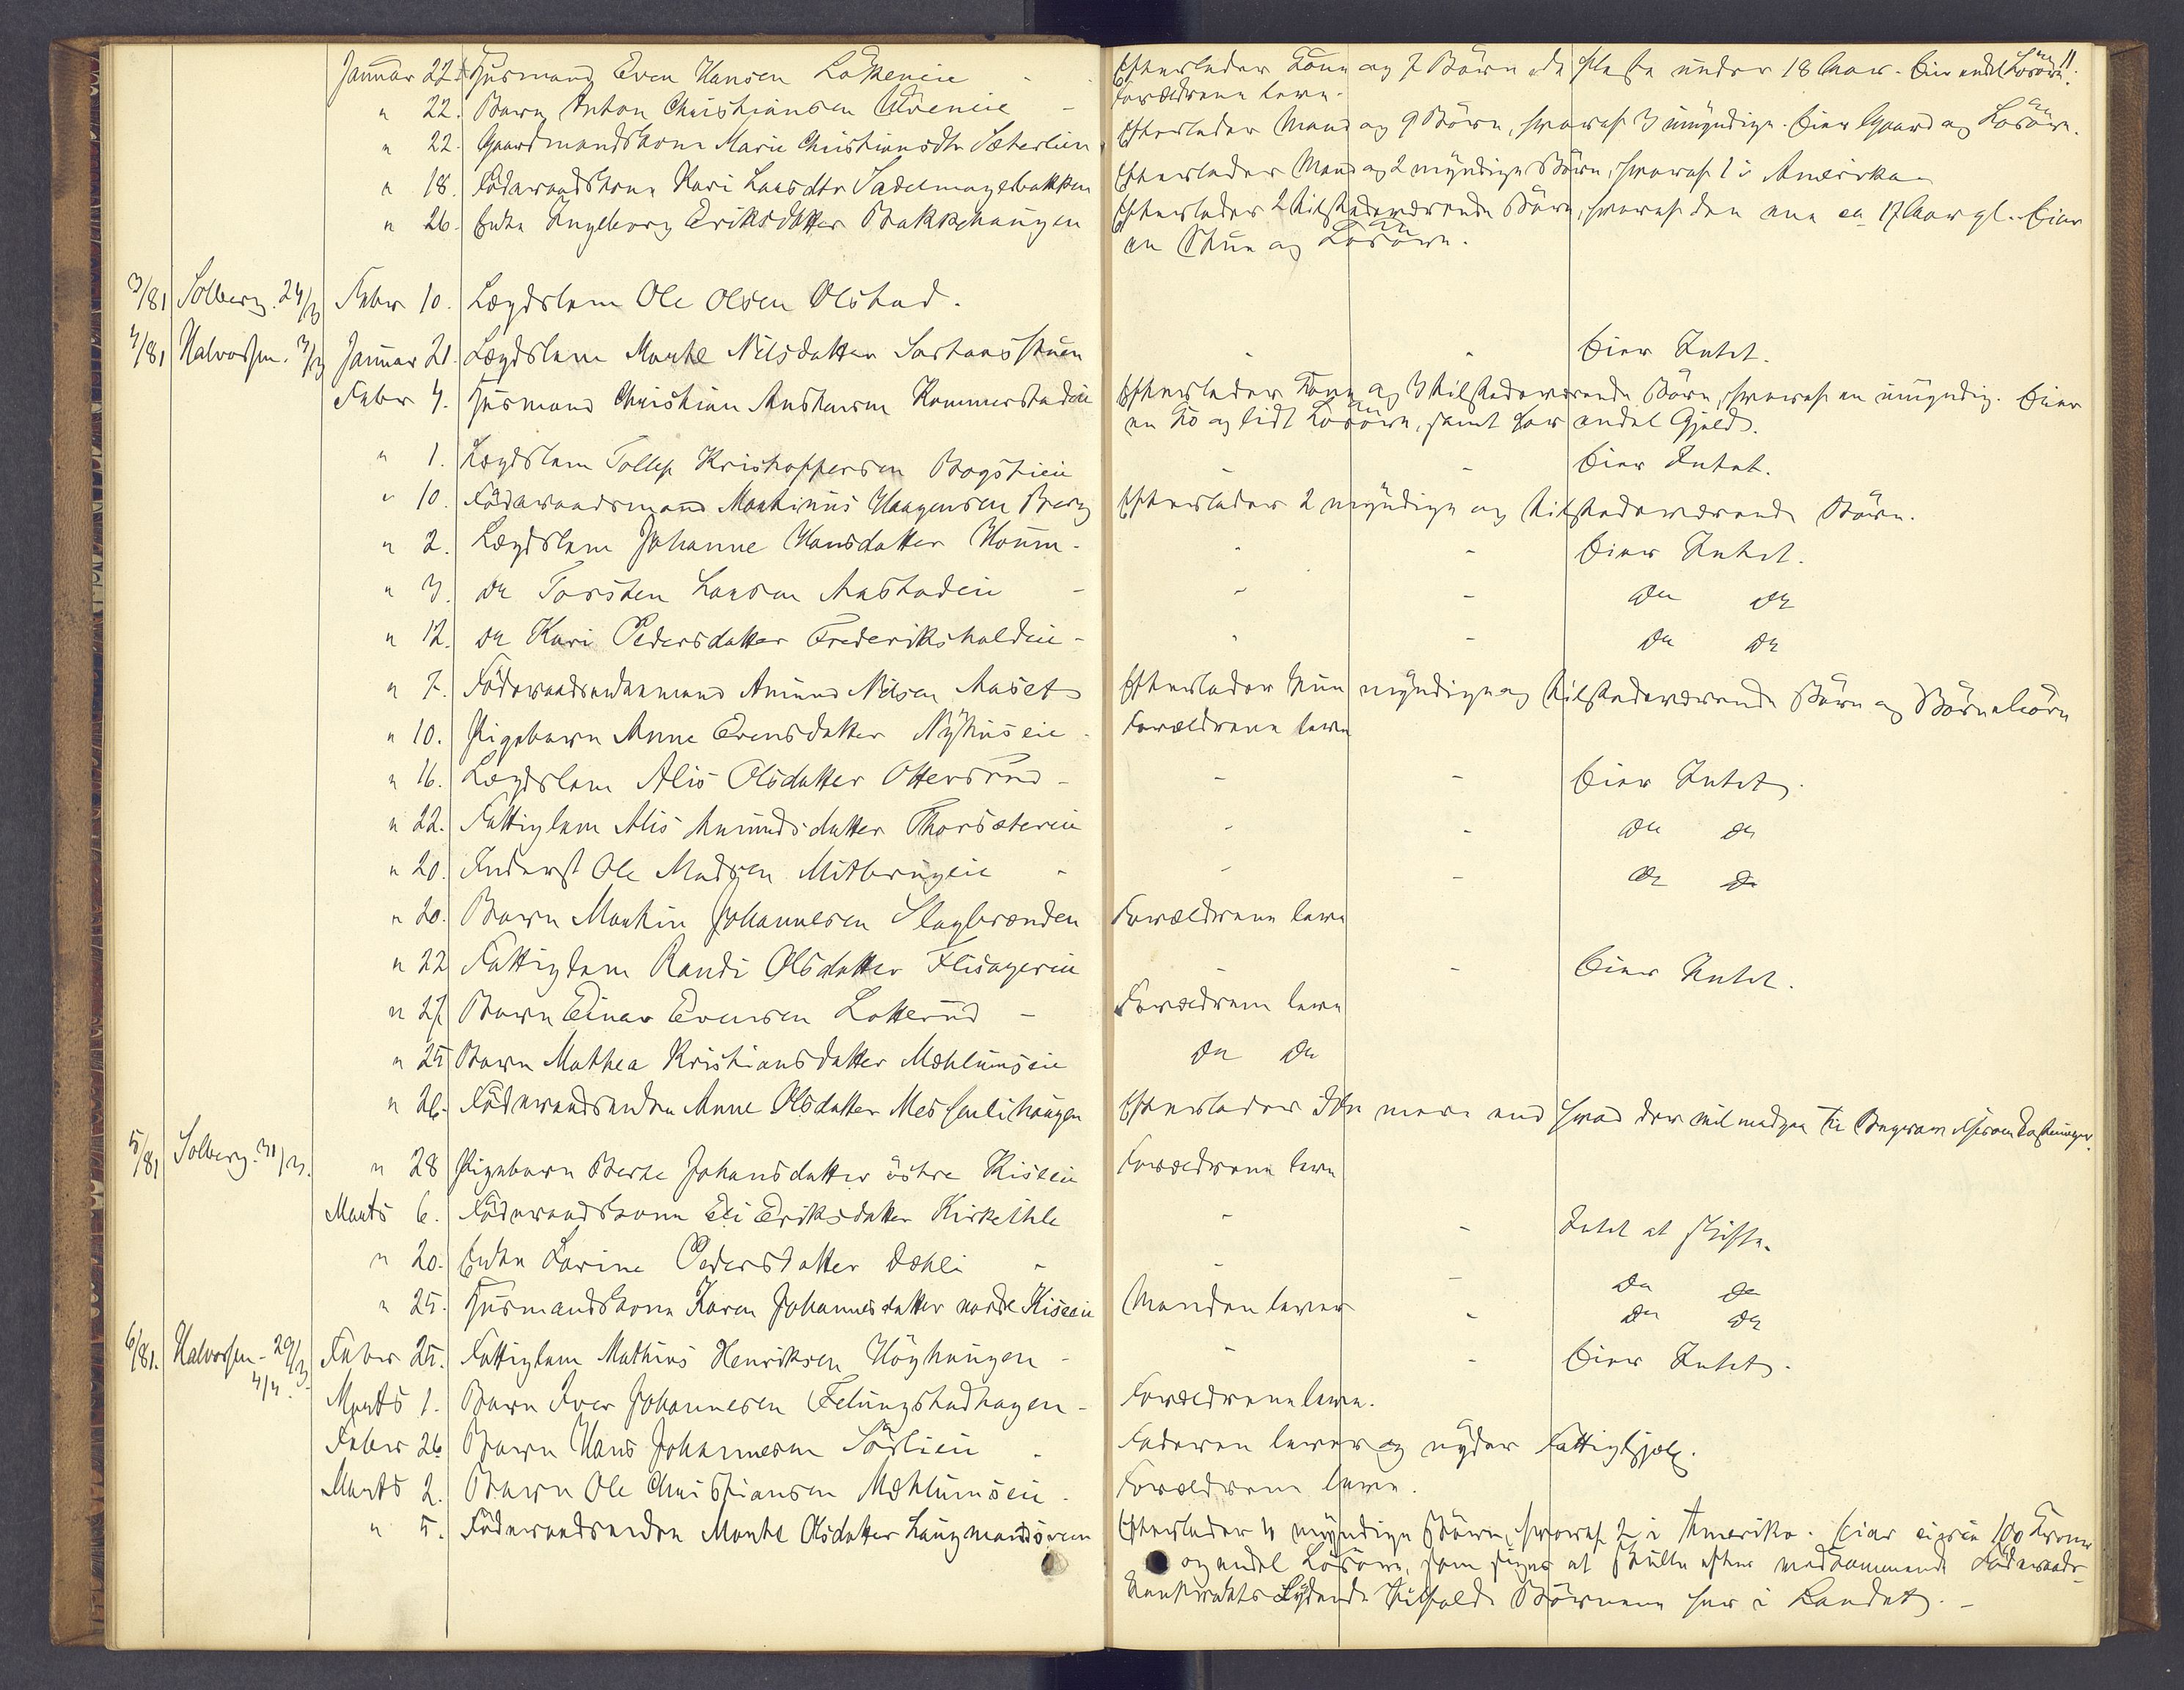 Januar 22. Husmand Even Hansen Løkeneie - - Efterlader Kone og 7 Børn de fleste under 18 Aar. Eier endel Løsøre!!
" 22. Barn Anton Christiansen Ulveneie - Forældrene leve.
" 22. Gaardmandskone Marie Christiansdtr Sæterlien Efterlader Mand og 9 Børn, hvoraf 3 umyndige. Eier Gaard og Løsøre.
" 18. Föderaadskone Kari Larsdtr Sadelmagerbakken Efterlader Mand og 2 myndige Børn, hvoraf 1 i Amerika
" 26. Enke Ingeborg Eriksdatter Bakkehaugen Efterlader 2 tilstedeværende Børn, hvoraf den ene ca 17 Aar gl. Eier
en Stue og Løsøre.
3/81 Solberg. 24/3 Febr 10. Lægdslem Ole Olsen Olstad.
4/81 Halvorsen. 3/3 Januar 21. Lægdslem Marthe Nilsdatter Sartansstuen - - Eier Intet.
Febr 4. Husmand Christian Anstensen Kammerstadeie Efterlader Kone og 3 tilstedeværende Børn, hvoraf en umyndig. Eier
en Ko og lidt Løsøre, samt har endel Gjæld.
" 1. Lægdslem Tollef Kristoffersen Bogstieie - - Eier Intet.
" 10. Föderaadsmand Martinus Haagensen Berg Efterlader 2 myndige og tilstedeværende Børn.
" 2. Lægdslem Johanne Hansdatter Houm - - - Eier Intet.
" 3. do Torsten Larsen Aastadeie - - - do do
" 12. do Kari Pedersdatter Frederikshaldeie - - - do do
" 7. Föderaadsenkemand Amund Nilsen Aaset Efterlader kun myndige og tilstedeværende Børn og Børnebørn
" 10. Pigebarn Anne Evensdatter Nyhuseie - Forældrene leve
" 16. Lægdslem Alis Olsdatter Ottersrud - - - Eier Intet.
" 22. Fattiglem Alis Amundsdatter Thorsætereie - - do do
" 20. Inderst Ole Madsen Mitbrugeie - - - do do
" 20. Barn Martin Johannesen Slagbrænden Forældrene leve
" 22 Fattiglem Randi Olsdatter Flisagereie - - Eier Intet.
" 27. Barn Einar Evensen Lotterud - Forældrene leve
" 25 Barn Mathea Kristiansdatter Mæhlumseie do do
" 26. Föderaadsenke Anne Olsdatter Messenlihaugen Efterlader Ikke mere end hvad der vil medgaa til Begravelsesomkostninger.
5/81 Solberg. 31/3. " 28 Pigebarn Berte Johansdatter østre Kiseeie Forældrene leve
Marts 6. Föderaadskone Eli Eriksdatter Kirkethle - - Intet at skifte.
" 20. Enke Karine Pedersdatter Dæhli - - - do do
" 25. Husmandskone Karen Johannesdatter nordre Kiseeie Manden lever - do do
6/81. Halvorsen - 29/3 Febr 25. Fattiglem Mathias Henriksen Höghaugen - - - Eier Intet.
4/4. Marts 1. Barn Iver Johannesen Felungstadhagen - Forældrene leve.
Febr 26 Barn Hans Johannesen Sörlieie - Faderen lever og nyder Fattighjælp.
Marts 2. Barn Ole Christiansen Mæhlumseie - Forældrene leve.
" 5. Föderaadsenke Marthe Olsdatter Laugmandsveen Efterlader 4 myndige Børn, hvoraf 2 i Amerika. Eier circa 100 Kroner
og endel Løsøre, som siges at skulle efter vedkommende Föderaads-
kontrakts Lydende tilfalde Børnene her i Landet. -